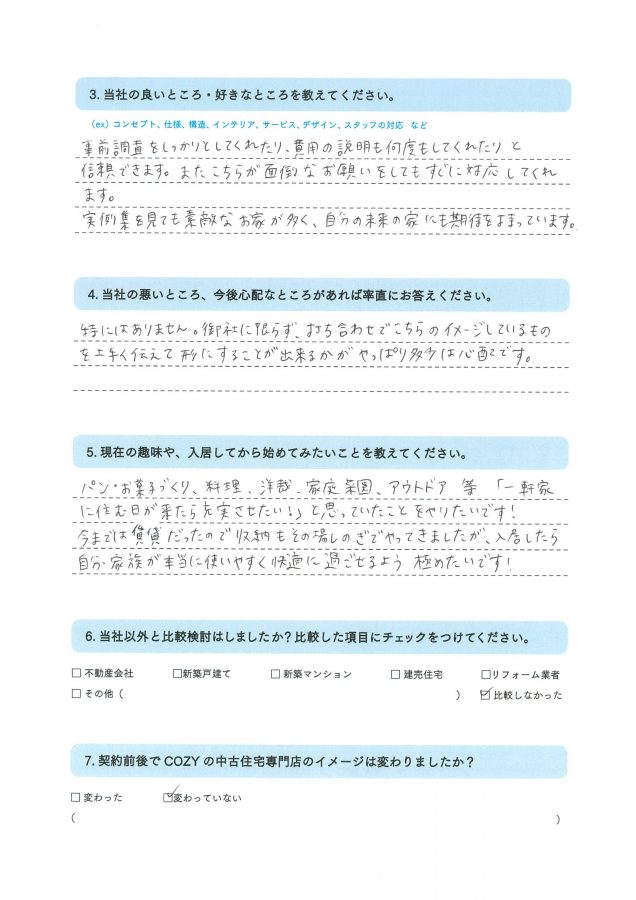 3. 当社の良いところ・好きなところを教えてください。
（ex）コンセプト、仕様、構造、インテリア、サービス、デザイン、スタッフの対応 など
事前調査をしっかりとしてくれたり、費用の説明も何度もしてくれたり と
信頼できます。またこちらが面倒なお願いをしてもすぐに対応してくれ
ます。
実例集を見ても素敵なお家が多く、自分の未来の家にも期待をよまっています。
4. 当社の悪いところ、今後心配なところがあれば率直にお答えください。
特にはありません。御社に限らず、打ち合わせでこちらのイメージしているもの
を上手く伝えて形にすることが出来るかがやっぱり多少は心配です。
5. 現在の趣味や、入居してから始めてみたいことを教えてください。
パン・お菓子づくり、料理、洋裁、家庭菜園、アウトドア 等 「一軒家
に住む日が来たら充実させたい！」と思っていたことをやりたいです！
今までは賃貸だったので収納もその場しのぎでやってきましたが、入居したら
自分・家族が本当に使いやすく快適に過ごせるよう極めたいです！
6. 当社以外と比較検討はしましたか？比較した項目にチェックをつけてください。
□ 不動産会社 □新築戸建て □ 新築マンション □ 建売住宅 □リフォーム業者
□ その他（ ） ☑ 比較しなかった
7. 契約前後で COZY の中古住宅専門店のイメージは変わりましたか？
□ 変わった ☑変わっていない
（ ）